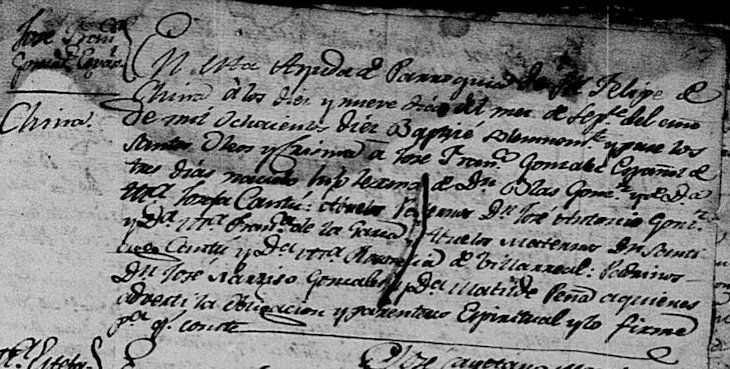 Jose Fran.co
Gonzalz Español
China.
En esta Ayuda de Parroquia de Sn Felipe de
China à los diez y nueve dias del mes de Sep.e del año
de mil Ochocientos diez Baptizé Solemnem.te y puse los
Santos Oleos y Crisma à Jose Fran.co Gonzalez Español de
tres dias nacido hijo lexmo de Dn Blas Gonz.z y de Da
Ma Josefa Cantu: Abuelos Paternos Dn José Antonio Gonz.z
y Da Ma Fran.ca de la Garza, Abuelos Maternos Dn Santi
ago Cantú y Da Ma de Villarreal: Padrinos
Dn Jose Narziso Gonzales y Da Matilde Peña aquienes
adverti la Obligacion y parentesco Espiritual y lo firmé
pa q.e conste
Jose Cayetano